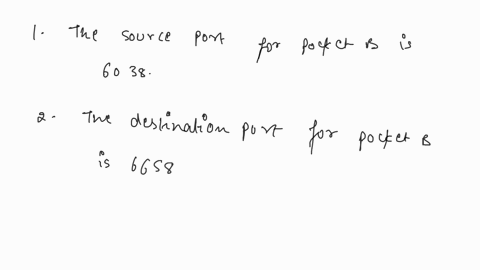 1. The source port for pocket B is
6038.
2. The destination port for pocket B
is 6658